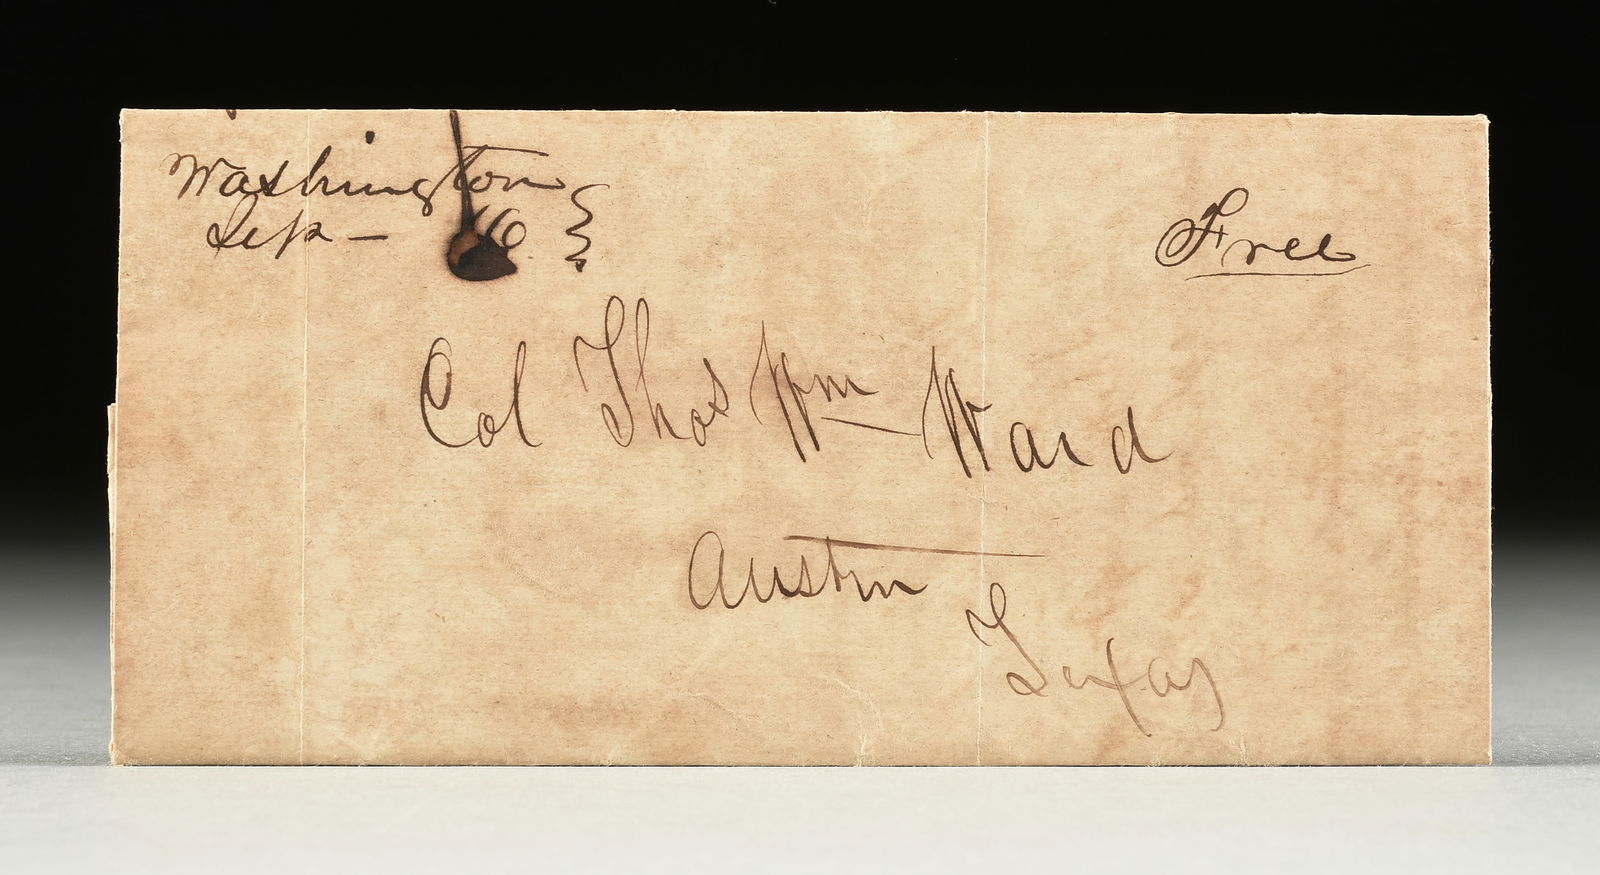 Washington
Sep – 16
Free
Col Thos Wm Ward
Austin
Texas